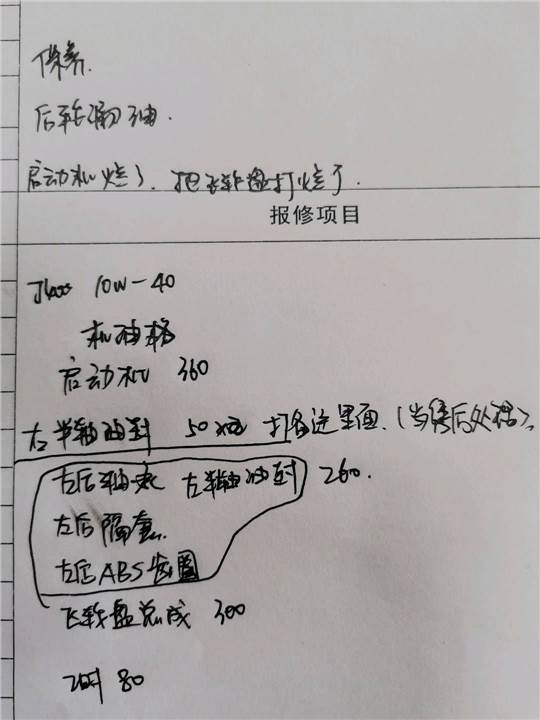 保养.
后轮漏油.
启动机烧了. 把飞轮盘打烧了.
报修项目
10W-40
机油格
启动机 360
右半轴油封 50 打在这里面.(当售后处理).
左后轴承 左半轴油封 260.
左后隔套
左后ABS齿圈
飞轮盘总成 300
工时 80